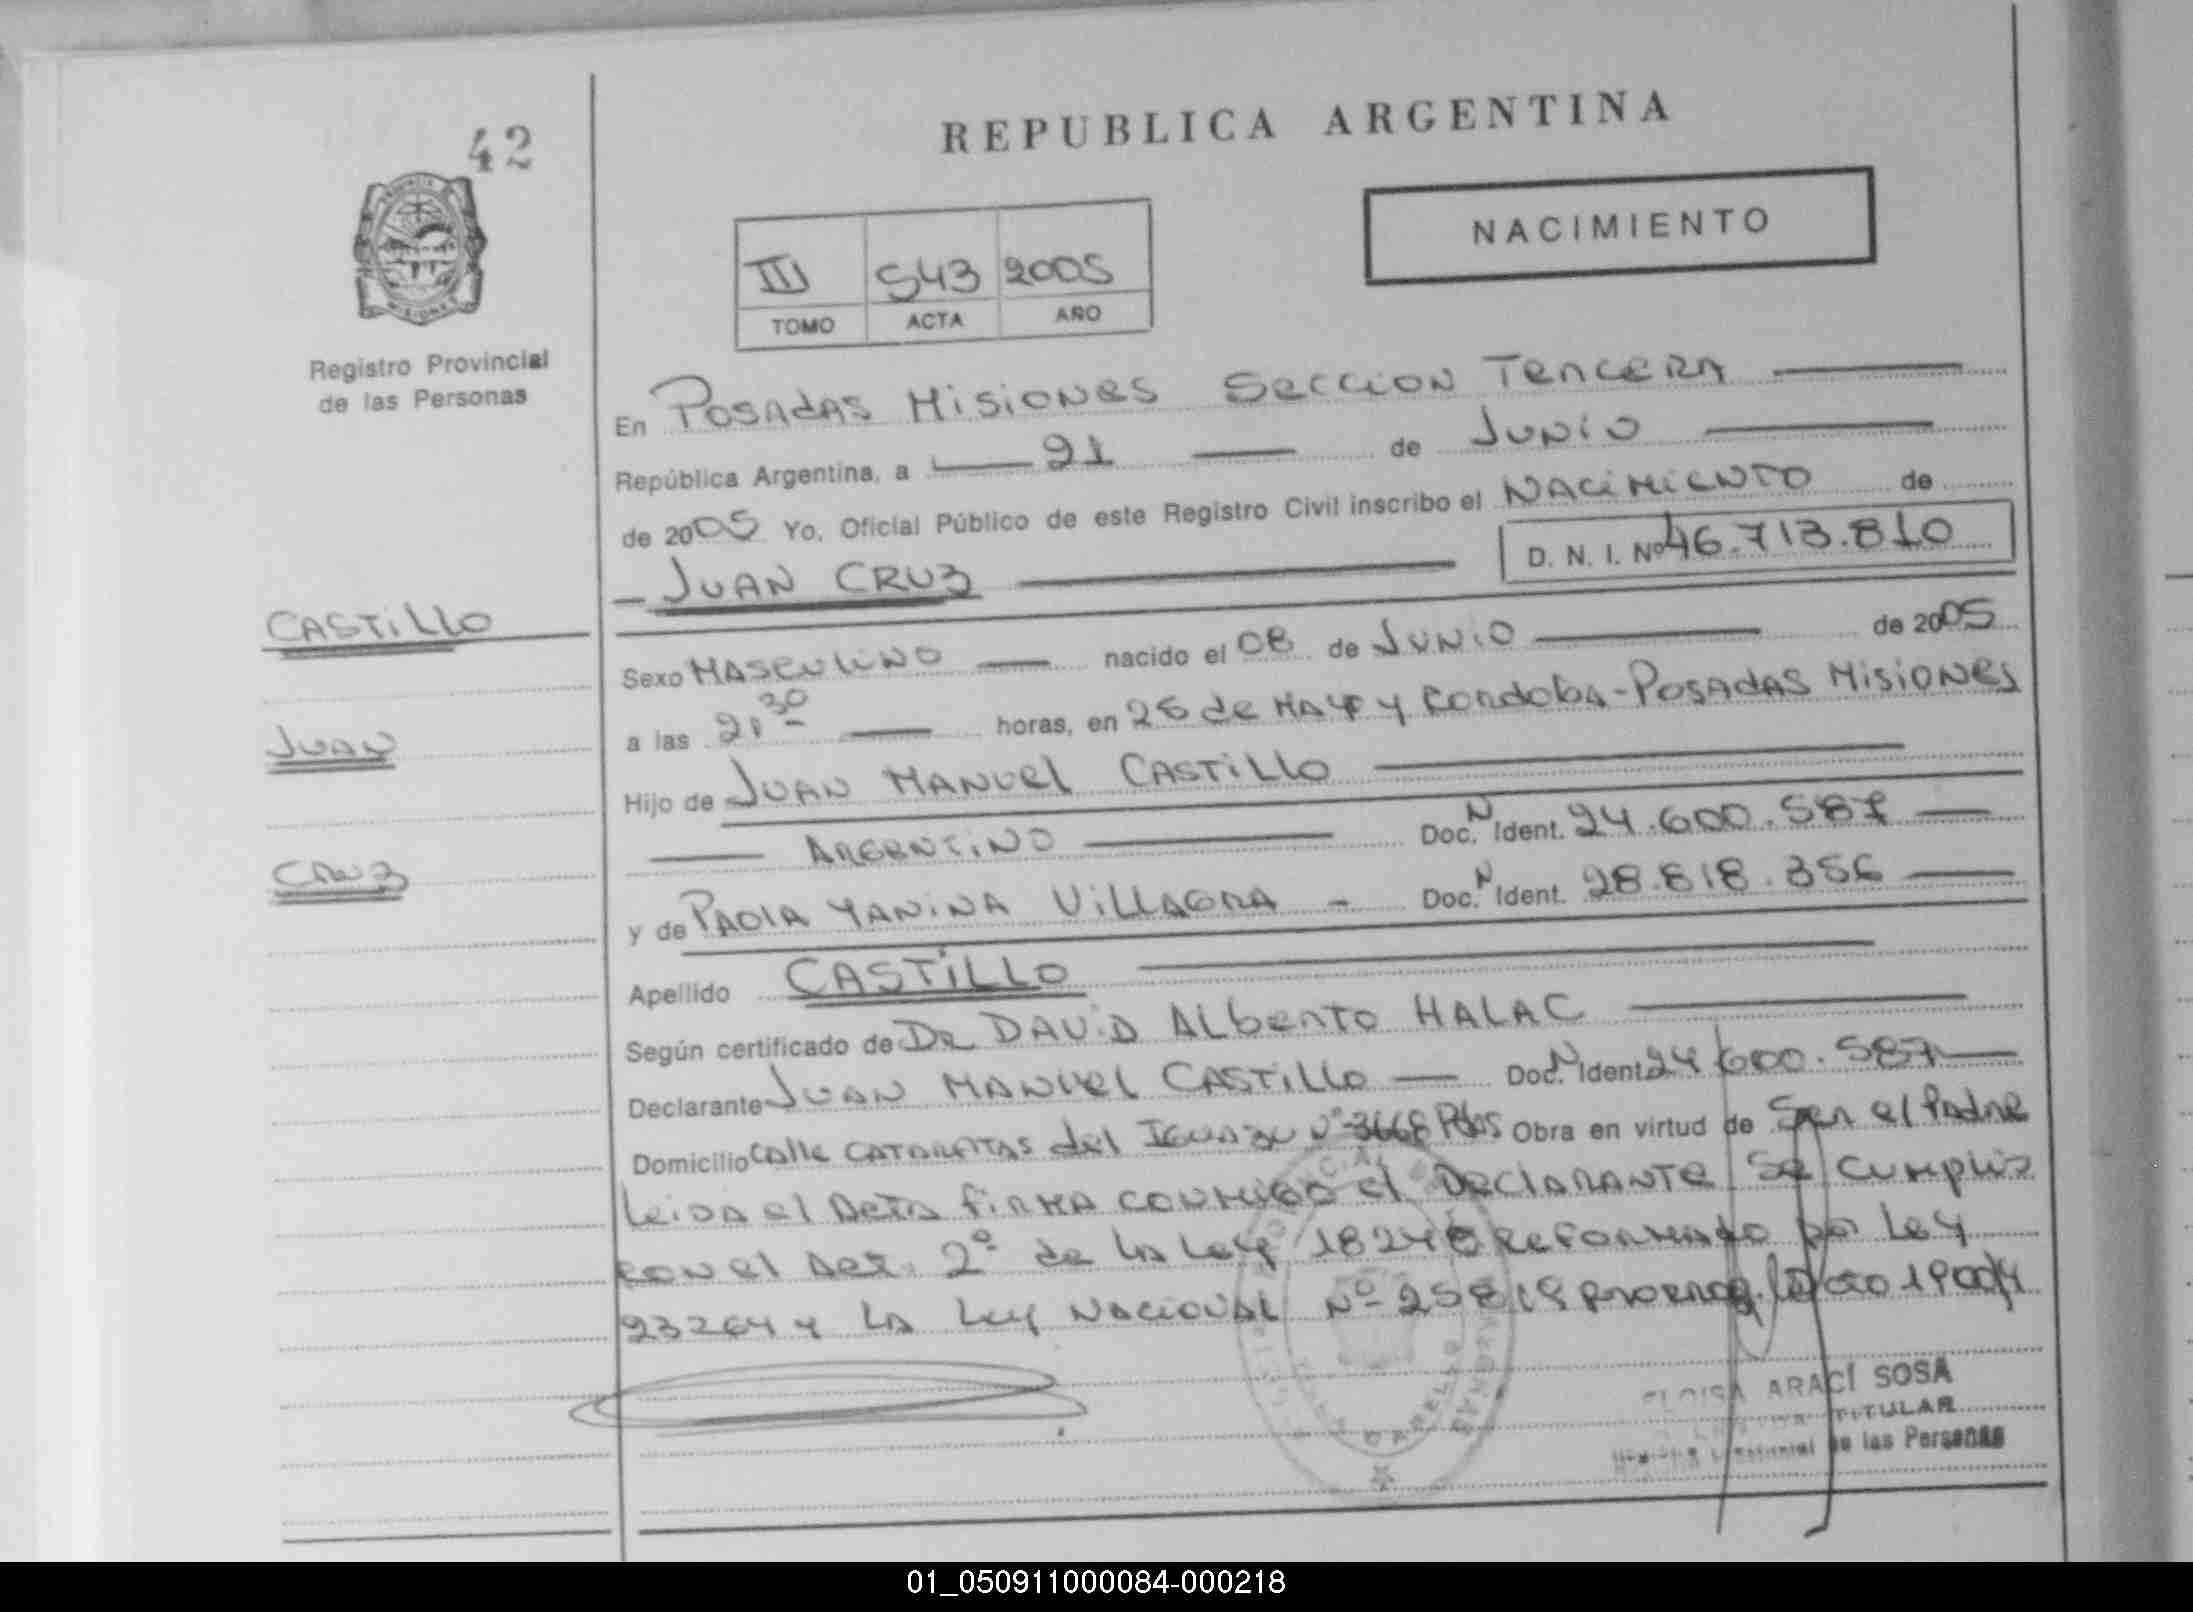 42
REPUBLICA ARGENTINA
NACIMIENTO
III 543 2005
TOMO ACTA AÑO
Registro Provincial
de las Personas
En POSADAS MISIONES SECCION TERCERA
República Argentina, a 21 de JUNIO
de 2005 Yo, Oficial Público de este Registro Civil inscribo el NACIMIENTO de
JUAN CRUZ D. N. I. Nº 46.713.810
CASTILLO
JUAN
CRUZ
Sexo MASCULINO nacido el 08 de JUNIO de 2005
a las 21.30 horas, en 25 de MAYO y CORDOBA - POSADAS MISIONES
Hijo de JUAN MANUEL CASTILLO
ARGENTINO Doc. N Ident. 24.600.587
y de PAOLA YANINA VILLAGRA - Doc. N Ident. 28.818.356
Apellido CASTILLO
Según certificado de DR DAVID ALBERTO HALAC
Declarante JUAN MANUEL CASTILLO Doc. N Ident. 24.600.587
Domicilio CALLE CATARATAS del IGUAZU Nº 3668 Pdas Obra en virtud de Ser el Padre
leida el Acta firma conmigo el DECLARANTE Se cumplio
con el Art. 2º de la Ley 18248 Reformado por Ley
23264 y LA Ley NACIONAL Nº 25819
ELOISA ARACÍ SOSA
TITULAR
de las Personas
01_050911000084-000218